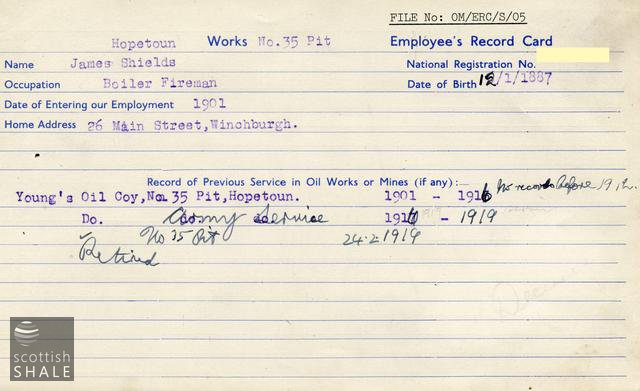 FILE No: OM/ERC/S/05
Hopetoun Works No.35 Pit Employee's Record Card
Name James Shields National Registration No.
Occupation Boiler Fireman Date of Birth 12/1/1887
Date of Entering our Employment 1901
Home Address 26 Main Street,Winchburgh.
Record of Previous Service in Oil Works or Mines (if any):—
Young's Oil Coy,No.35 Pit,Hopetoun. 1901 - 1916 No records before 1912.
Do. Army Service 1916 - 1919
No 35 Pit 24.2.1919
Retired
scottish
SHALE